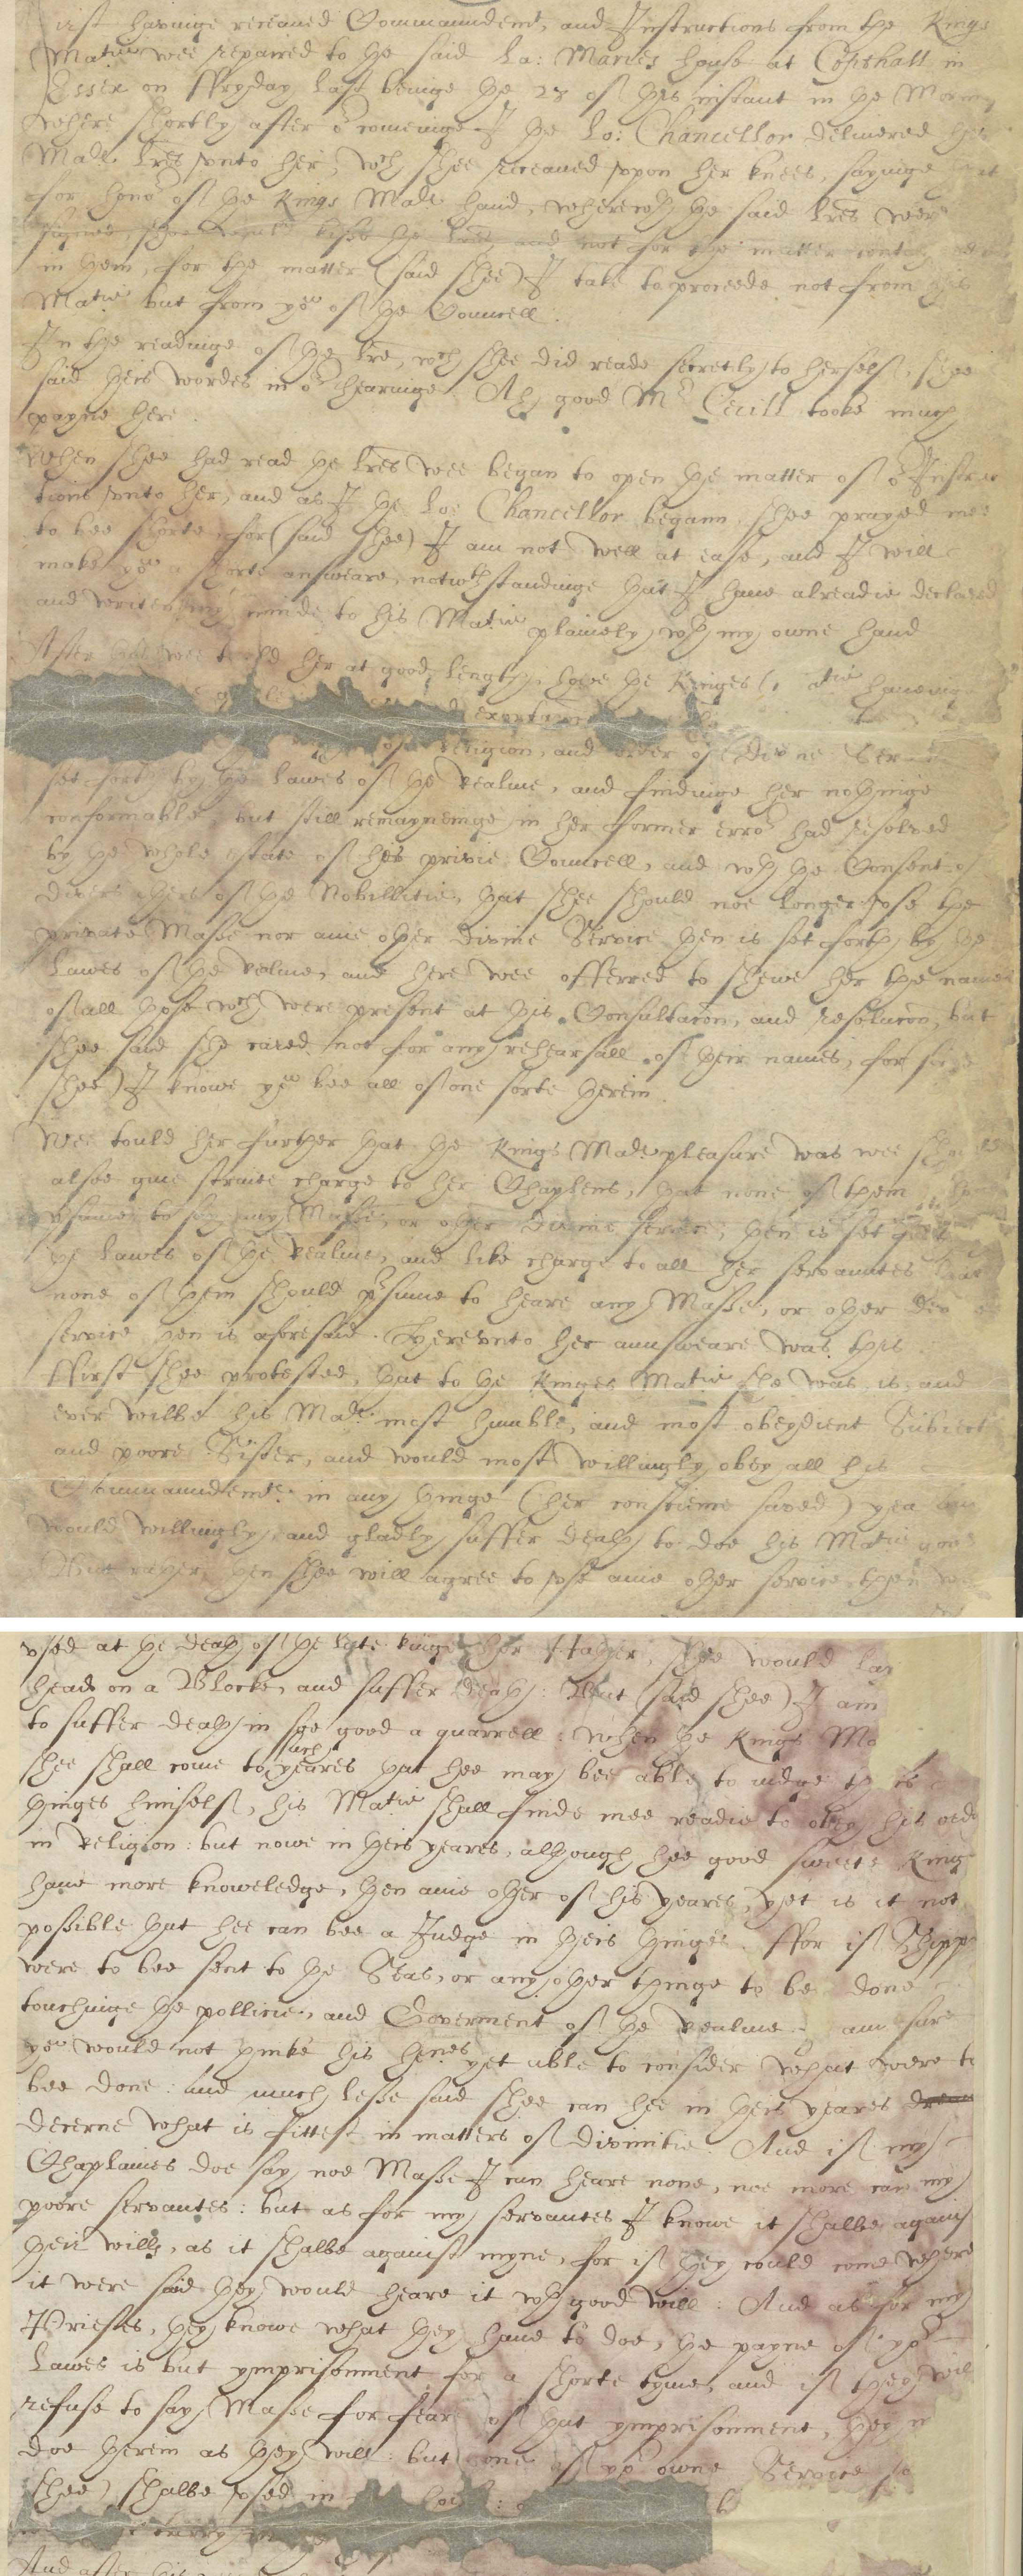 irst havinge receaved Commaundemt, and Instructions from the Kings
Matie wee repaired to the said La: Maries house at Copthall in
Essex on ffryday last beinge the 28 of this instant in the Morning
where shortly after or cominge I the Lo: Chancellor delivered his
Mats Lres unto her, wch shee receaved uppon her knees, sayinge
for honor of the Kings Mats hand, wherewth the said Lres were
signed, shee would kisse the Lres, and not for the matter contayned
in them, for the matter (said shee) I take to proceede not from his
Matie but from you of the Councell.
In the readinge of the Lre, wch shee did reade secretly to herself, shee
said theis wordes in or hearinge Ah good Mr Cecill tooke much
payne here.
When shee had read the Lres wee began to open the matter of or Instruc
tions unto her, and as I the Lo: Chancellor began, shee prayed mee
to bee shorte, for (said shee) I am not well at ease, and I will
make you a shorte answeare, notwthstandinge that I have alreadie declared
and written my minde to his Matie plainely wth my owne hand
After that wee tould her at good length, howe the Kinges Matie haveing
exhortac
of religion, and order of Devine Servi
set forth by the lawes of the Realme, and findinge her nothinge
conformable, but still remayneinge in her former error had resolved
by the whole estate of his privie Councell, and wth the Consent of
divers others of the Nobillitie, that shee should noe longer use the
private Masse nor anie other divine Service then is set forth by the
lawes of the Realme, and here wee offerred to shewe her the names
of all those wch were present at this Consultacon, and resolucon, but
shee said she cared not for any rehearsall of their names, for said
shee) I knowe you bee all of one sorte therein.
Wee tould her further that the Kings Mats pleasure was wee should
alsoe give straite charge to her Chaplens, that none of them
presume to say any Masse, or other divine service, then is set forth
by lawes of the Realme, and like charge to all her servauntes that
none of them should psume to heare any Masse, or other devine
service then is aforesaid. Thereunto her aunsweare was this
ffirst shee protested, that to the Kinges Matie she was, is, and
ever wilbe his Mats most humble, and most obeydient Subiect
and poore Sister, and would most willingly obey all his
Commaundemts in any thinge (her conscience saved) yea
would willingly, and gladly suffer death to doe his Matie good
But rather then shee will agree to use anie other service, then was
used at the death of the late kinge her ffather, shee would lay
head on a Blocke, and suffer death: But (said shee) I am
to suffer death in soe good a quarrell: When the Kings Ma
shee shall come to such yeares that hee may bee able to iudge theis
thinges himself, his Matie shall finde mee readie to obey his orde
in religion: but nowe in theis yeares, although hee good sweete King
have more knoweledge, then anie other of his yeares, yet is it not
possible that hee can bee a Judge in theis thinges. ffor if Shipps
were to bee sent to the Seas, or any other thinge to be done
touchinge the pollicie, and Goverment of the Realme I am sure
you would not thinke his Highnes yet able to consider what were to
bee done: and much lesse said shee can hee in theis yeares
decerne what is fittest in matters of divinitie. And if my
Chaplaines doe say noe Masse I can heare none, noe more can my
poore servantes: but as for my servantes I knowe it shalbe against
their wills, as it shalbe against myne, for if they could come where
it were said they would heare it wth good will: And as for my
Priestes, they knowe what they have to doe, the payne of yor
Lawes is but ymprisonment for a shorte tyme, and if they will
refuse to say Masse for fear of that ymprisonment, they m
doe therein as they will: but none of yor owne Service sa
shee) shalbe used in
And after this